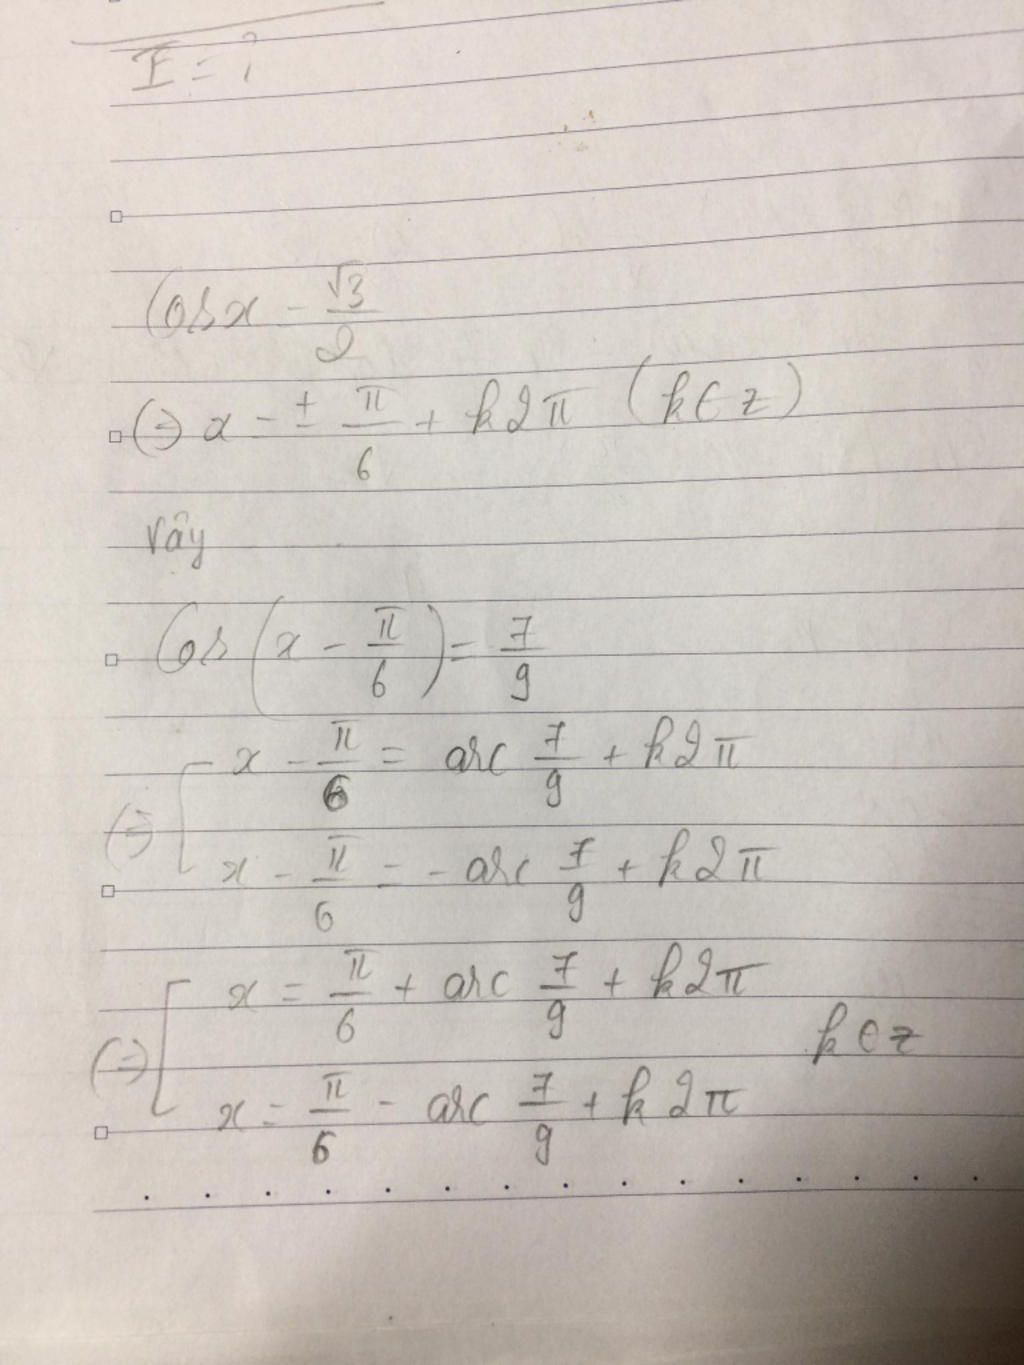 I = ?
Cos x = √3/2
(=) x = ± π/6 + k2π (k∈z)
Vây
Cos(x - π/6) = 7/9
(=) [ x - π/6 = arc 7/9 + k2π
x - π/6 = - arc 7/9 + k2π
(=) [ x = π/6 + arc 7/9 + k2π
k∈z
x = π/6 - arc 7/9 + k2π